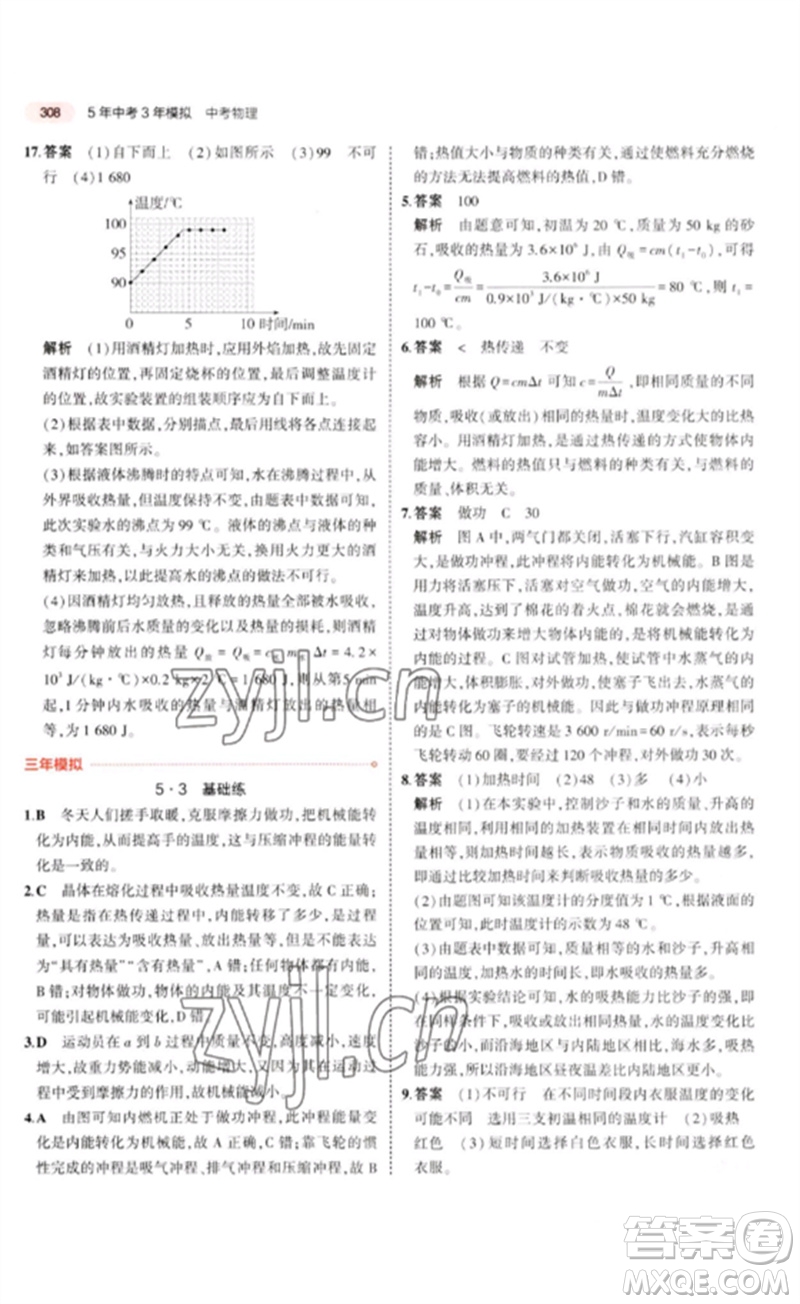 308 5年中考3年模拟 中考物理
17.答案 (1)自下而上 (2)如图所示 (3)99 不可
行 (4)1 680
温度/℃
100
95
90
0 5 10 时间/min
解析 (1)用酒精灯加热时,应用外焰加热,故先固定
酒精灯的位置,再固定烧杯的位置,最后调整温度计
的位置,故实验装置的组装顺序应为自下而上。
(2)根据表中数据,分别描点,最后用线将各点连接
起来,如答案图所示。
(3)根据液体沸腾时的特点可知,水在沸腾过程中,从
外界吸收热量,但温度保持不变,由题表中数据可知,
此次实验水的沸点为 99 ℃。液体的沸点与液体的种
类和气压有关,与火力大小无关,换用火力更大的酒
精灯来加热,以此提高水的沸点的做法不可行。
(4)因酒精灯均匀放热,且释放的热量全部被水吸收,
忽略沸腾前后水质量的变化以及热量的损耗,则酒精
灯每分钟放出的热量 Q放=Q吸=c水m水Δt=4.2×
10³ J/(kg·℃)×0.2 kg×2 ℃=1 680 J,则从第5 min
起,1 分钟内水吸收的热量与酒精灯放出的热量相
等,为1 680 J。
三年模拟
5·3 基础练
1.B 冬天人们搓手取暖,克服摩擦力做功,把机械能转
化为内能,从而提高手的温度,这与压缩冲程的能量转
化是一致的。
2.C 晶体在熔化过程中吸收热量温度不变,故 C 正确;
热量是指在热传递过程中,内能转移了多少,是过程
量,可以说吸收热量、放出热量等,但不能说物体
有“具有热量”“含有热量”,A 错;任何物体都有内能,
B 错;对物体做功,物体的机械能与内能不一定变化,
可能引起机械能变化,D 错。
3.D 运动员在 a 到 b 过程中质量不变,高度减小,速度
增大,故重力势能减小,动能增大,又因为其在运动过
程中受到摩擦力的作用,故机械能变小。
4.A 由图可知内燃机正处于做功冲程,此冲程能量变
化是内能转化为机械能,故 A 正确,C 错;靠飞轮的惯
性完成的冲程是吸气冲程、排气冲程和压缩冲程,故 B
错;热值大小与物质的种类有关,所以使燃料充分燃烧
的方法无法提高燃料的热值,D 错。
5.答案 100
解析 由题意可知,初温为 20 ℃,质量为 50 kg 的砂
石,吸收的热量为 3.6×10⁶ J,由 Q吸=cm(t₁-t₀),可得
t₁-t₀=Q吸/cm=3.6×10⁶ J/(0.9×10³ J/(kg·℃)×50 kg)=80 ℃,则 t₁=
100 ℃。
6.答案 < 热传递 不变
解析 根据 Q=cmΔt 可知 c=Q/(mΔt),即相同质量的不同
物质,吸收(或放出)相同的热量时,温度变化大的比热
容小。用酒精灯加热,是通过热传递的方式使物体内
能增大。燃料的热值只与燃料的种类有关,与燃料的
质量、体积无关。
7.答案 做功 C 30
解析 图 A 中,两气门都关闭,活塞下行,汽缸容积变
大,是做功冲程,此冲程将内能转化为机械能。B 图是
用力将活塞压下,活塞对空气做功,空气的内能增大,
温度升高,达到了棉花的着火点,棉花就会燃烧,是
通过对外物做功来增大物体内能的,是将机械能转化
为内能的过程。C 图对试管加热,使试管中水蒸气的
内能增大,体积膨胀,对外做功,使塞子飞出去,水蒸气
的内能转化为塞子的机械能,与做功冲程原理相同
的是 C 图。飞轮转速是 3 600 r/min=60 r/s,每秒
飞轮转动 60 圈,要经过 120 个冲程,对外做功 30 次。
8.答案 (1)加热时间 (2)48 (3)多 (4)小
解析 (1)在本实验中,控制沙子和水的质量、升高的
温度相同,利用相同的加热装置在相同时间内放出热量
相同,加热时间越长,表示物质吸收的热量越多,故
实验中用加热时间来判断吸收热量多少。
(2)由题图可知该温度计的分度值为 1 ℃,根据液面的
位置可知,此时温度计的示数为 48 ℃。
(3)由题表中数据可知,质量相等的水和沙子,升高相
同的温度,加热水的时间长,即水吸收的热量多。
(4)根据实验结论可知,水的吸热能力比沙子的强,即
在同样条件下,吸收或放出相同的热量,水的温度变化
小,而沿海地区与内陆地区相比水多,水的比热容大,吸
热能力强,所以沿海地区昼夜温差比内陆地区更小。
9.答案 (1)不可行 在不同时间段内衣服温度的变化
可能不同 选用三支初温相同的温度计 (2)吸热
红色 (3)短时间选择白色衣服,长时间选择红色
衣服。
zyjl.cn
zyjl.cn
答案圈
MXQE.COM